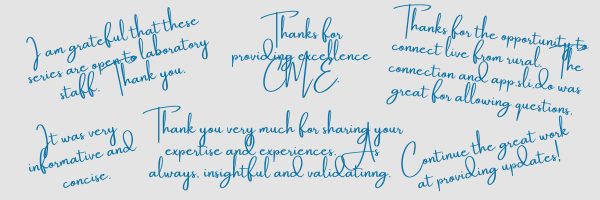 I am grateful that these
series are open to laboratory
staff. Thank you.
Thanks for
providing excellence
CME.
Thanks for the opportunity to
connect live from rural. The
connection and app.sli.do was
great for allowing questions.
It was very
informative and
concise.
Thank you very much for sharing your
expertise and experiences. As
always, insightful and validatinng.
Continue the great work
at providing updates!